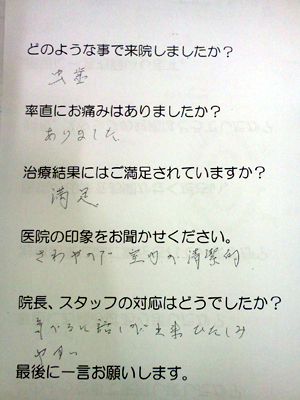 どのような事で来院しましたか？
虫歯
率直にお痛みはありましたか？
ありました
治療結果にはご満足されていますか？
満足
医院の印象をお聞かせください。
さわやかで 室内が清潔的
院長、スタッフの対応はどうでしたか？
話しが出来 したしみ
やすい
最後に一言お願いします。